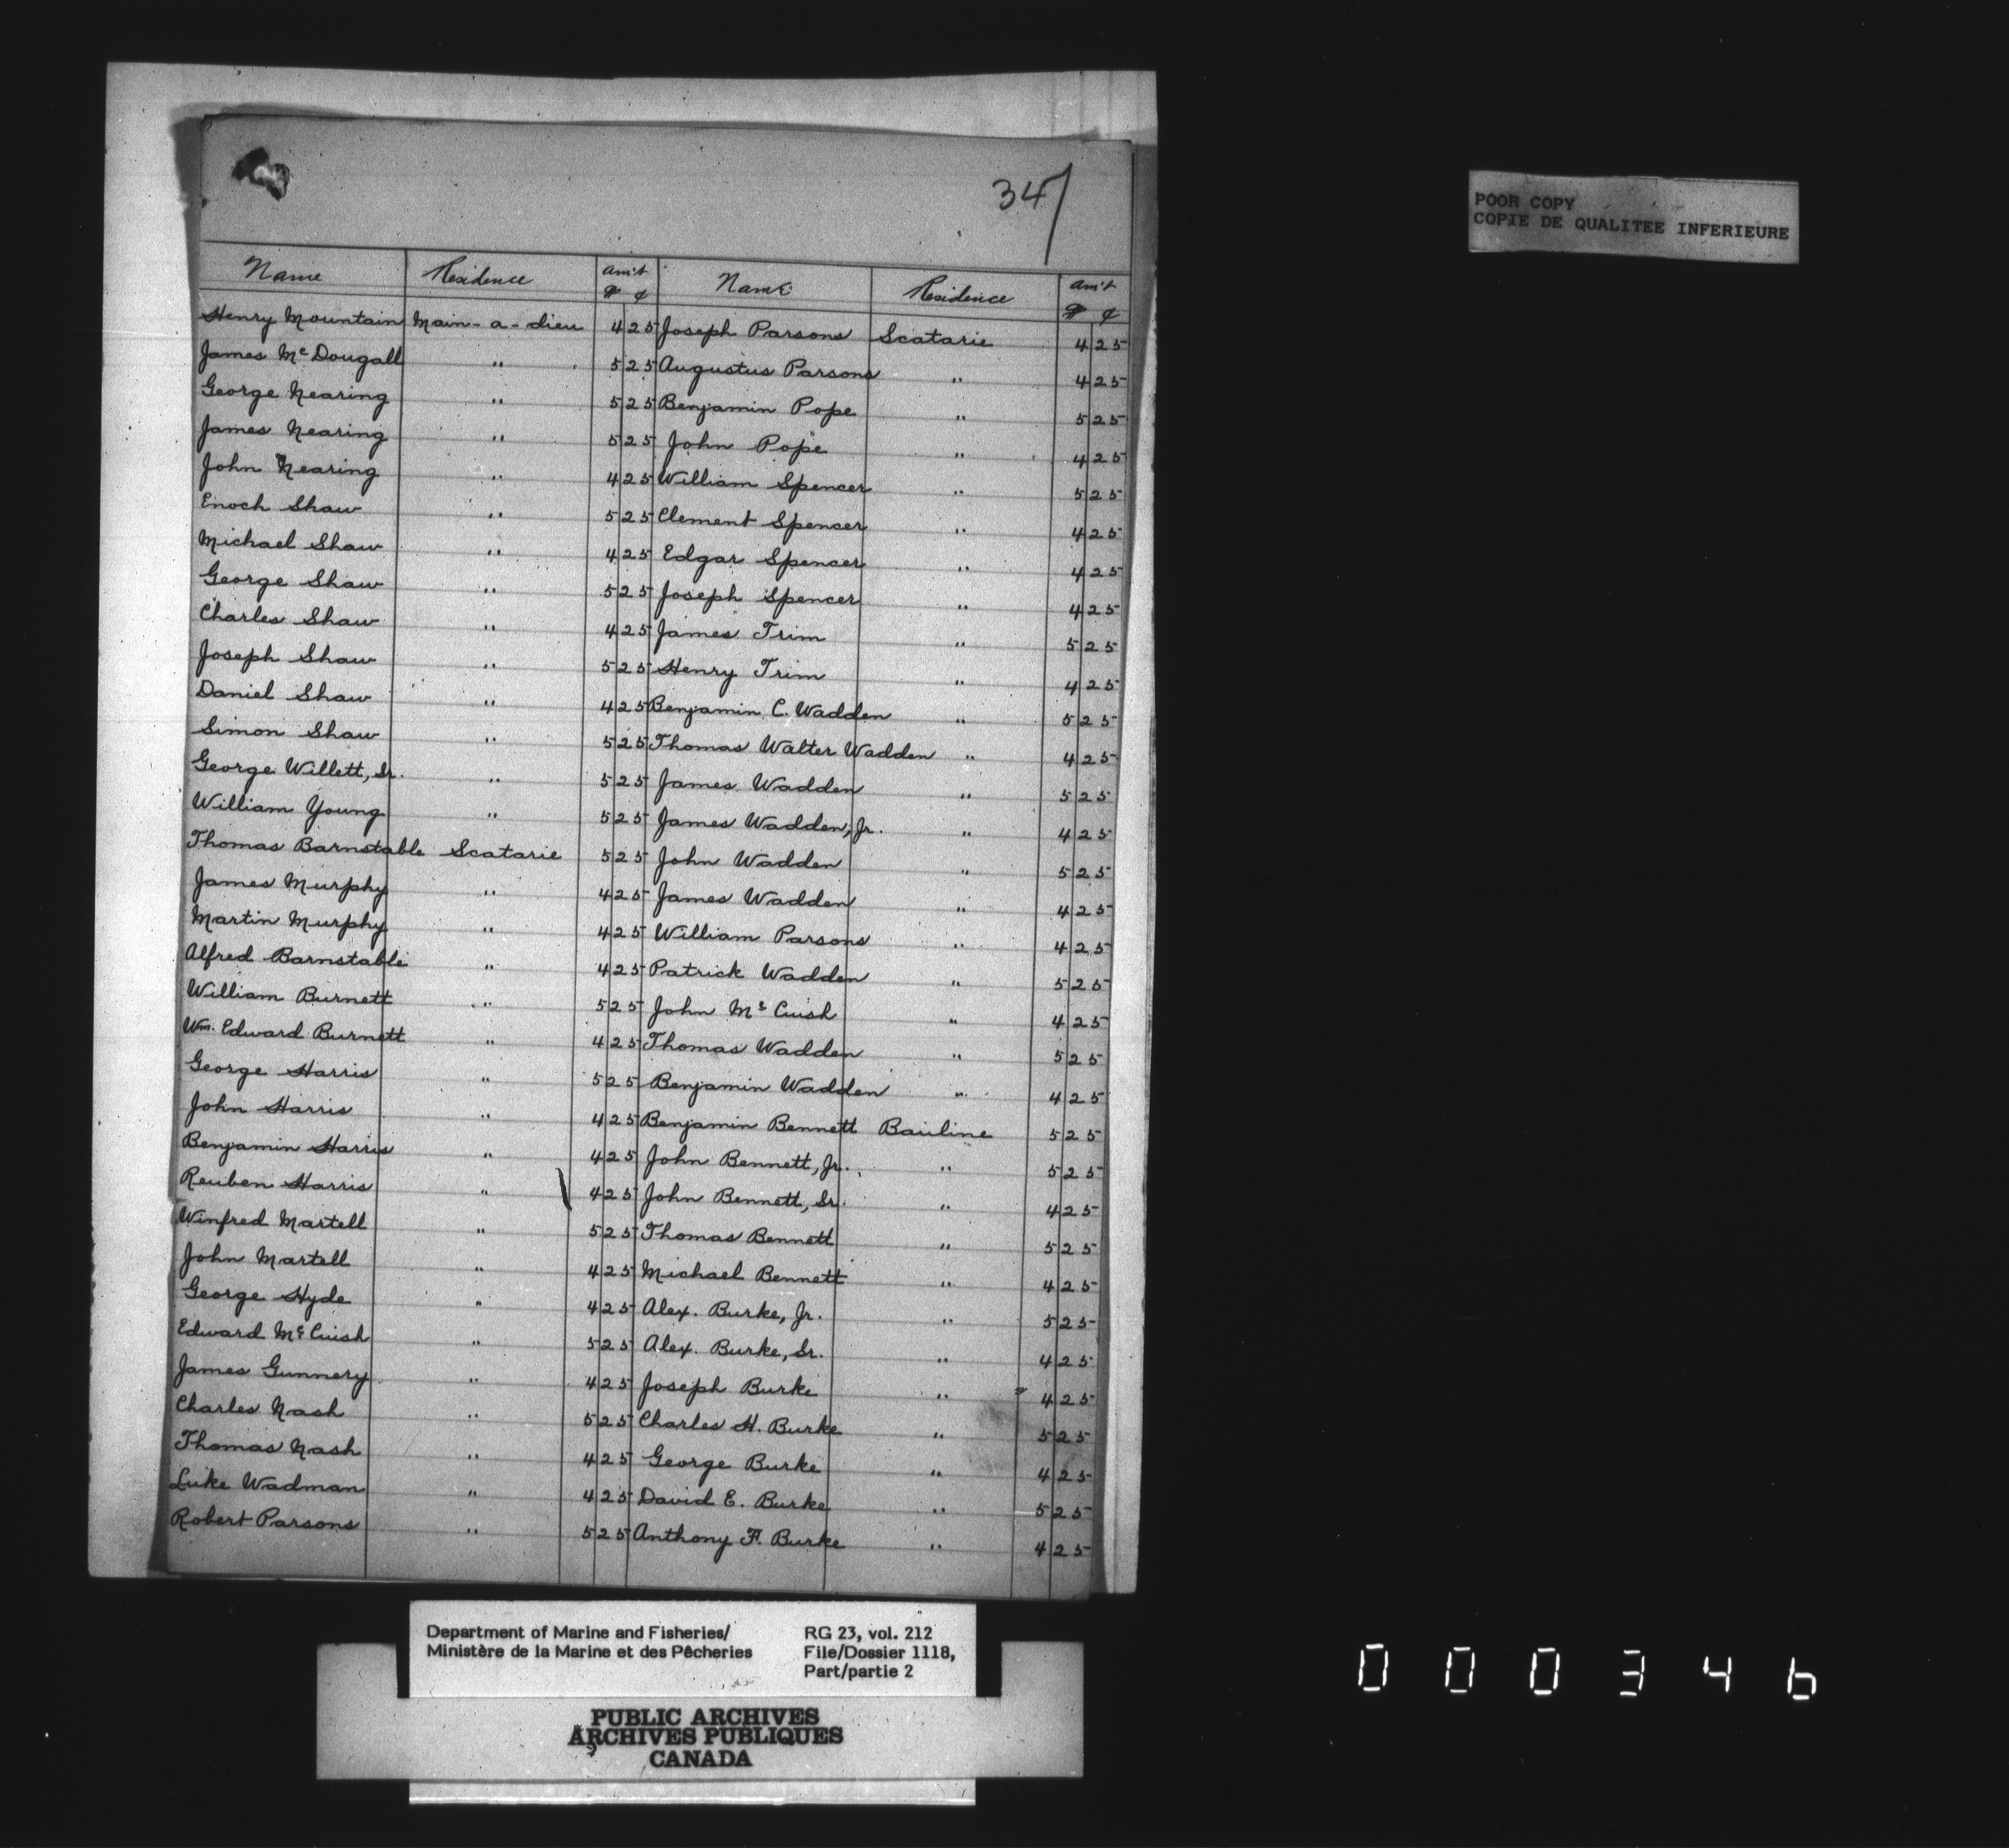 34
POOR COPY
COPIE DE QUALITEE INFERIEURE
Name Residence Am't Name Residence Am't
$ ¢ $ ¢
Henry Mountain Main-a-dieu 4 25 Joseph Parsons Scatarie 4 25
James McDougall " 5 25 Augustus Parsons " 4 25
George Nearing " 5 25 Benjamin Pope " 5 25
James Nearing " 5 25 John Pope " 4 25
John Nearing " 4 25 William Spencer " 5 25
Enoch Shaw " 5 25 Clement Spencer " 4 25
Michael Shaw " 4 25 Edgar Spencer " 4 25
George Shaw " 5 25 Joseph Spencer " 4 25
Charles Shaw " 4 25 James Trim " 5 25
Joseph Shaw " 5 25 Henry Trim " 4 25
Daniel Shaw " 4 25 Benjamin C. Wadden " 5 25
Simon Shaw " 5 25 Thomas Walter Wadden " 4 25
George Willett, Sr. " 5 25 James Wadden " 5 25
William Young " 5 25 James Wadden, Jr. " 4 25
Thomas Barnstable Scatarie 5 25 John Wadden " 5 25
James Murphy " 4 25 James Wadden " 4 25
Martin Murphy " 4 25 William Parsons " 4 25
Alfred Barnstable " 4 25 Patrick Wadden " 5 25
William Burnett " 5 25 John McCuish " 4 25
Wm. Edward Burnett " 4 25 Thomas Wadden " 5 25
George Harris " 5 25 Benjamin Wadden " 4 25
John Harris " 4 25 Benjamin Bennett Bauline 5 25
Benjamin Harris " 4 25 John Bennett, Jr. " 5 25
Reuben Harris " 4 25 John Bennett, Sr. " 4 25
Winfred Martell " 5 25 Thomas Bennett " 5 25
John Martell " 4 25 Michael Bennett " 4 25
George Hyde " 4 25 Alex. Burke, Jr. " 5 25
Edward McCuish " 5 25 Alex. Burke, Sr. " 4 25
James Gunnery " 4 25 Joseph Burke " 4 25
Charles Nash " 5 25 Charles H. Burke " 5 25
Thomas Nash " 4 25 George Burke " 4 25
Luke Wadman " 4 25 David E. Burke " 5 25
Robert Parsons " 5 25 Anthony F. Burke " 4 25
Department of Marine and Fisheries/ RG 23, vol. 212
Ministère de la Marine et des Pêcheries File/Dossier 1118,
Part/partie 2
PUBLIC ARCHIVES
ARCHIVES PUBLIQUES
CANADA
000346